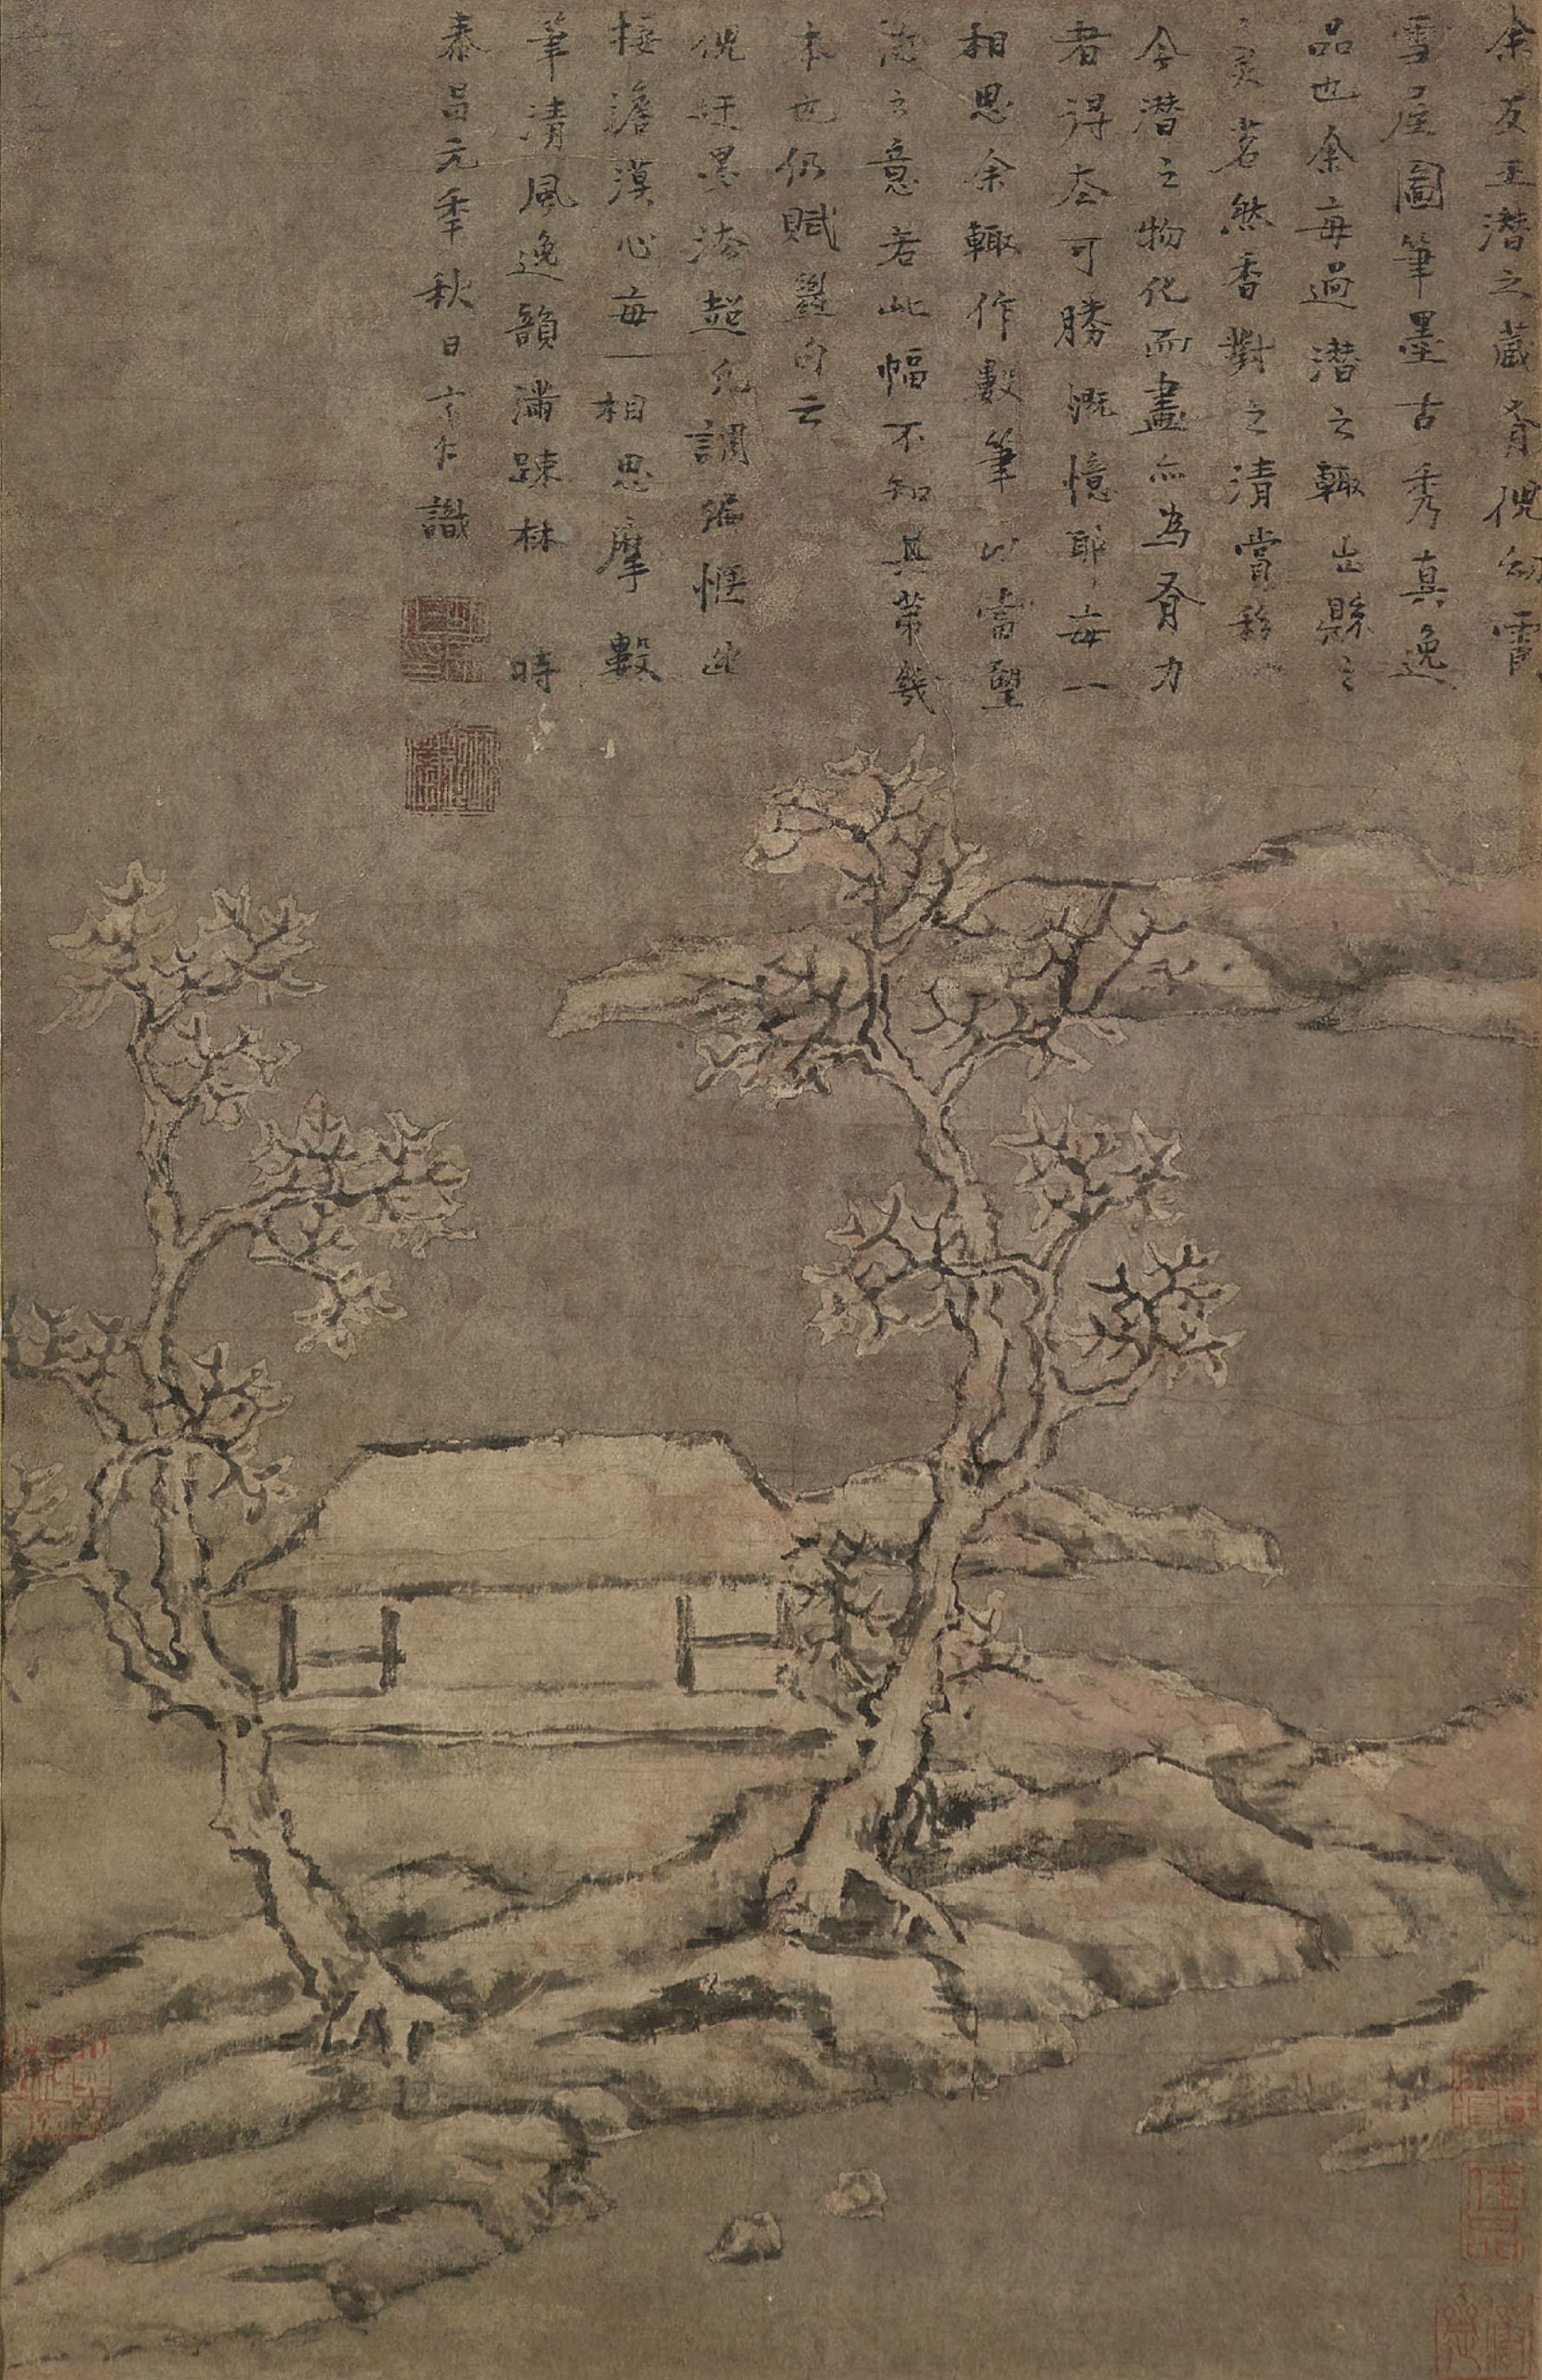 余友王潛之藏有倪幼霞
雪屋圖筆墨古秀真逸
品也余每過潛之輒出縣之
煮茗然香對之清賞移
今潛之物化而畫亦為有力
者得去可勝慨憶耶每一
相思余輒作數筆以當望
之意若此幅不知其第幾
本也仍賦斷句云
倪迂墨 超凡調 惟
澹漠心每一相思摩 數
筆清風逸韻滿疎林 時
泰昌元季秋日 識
佳品